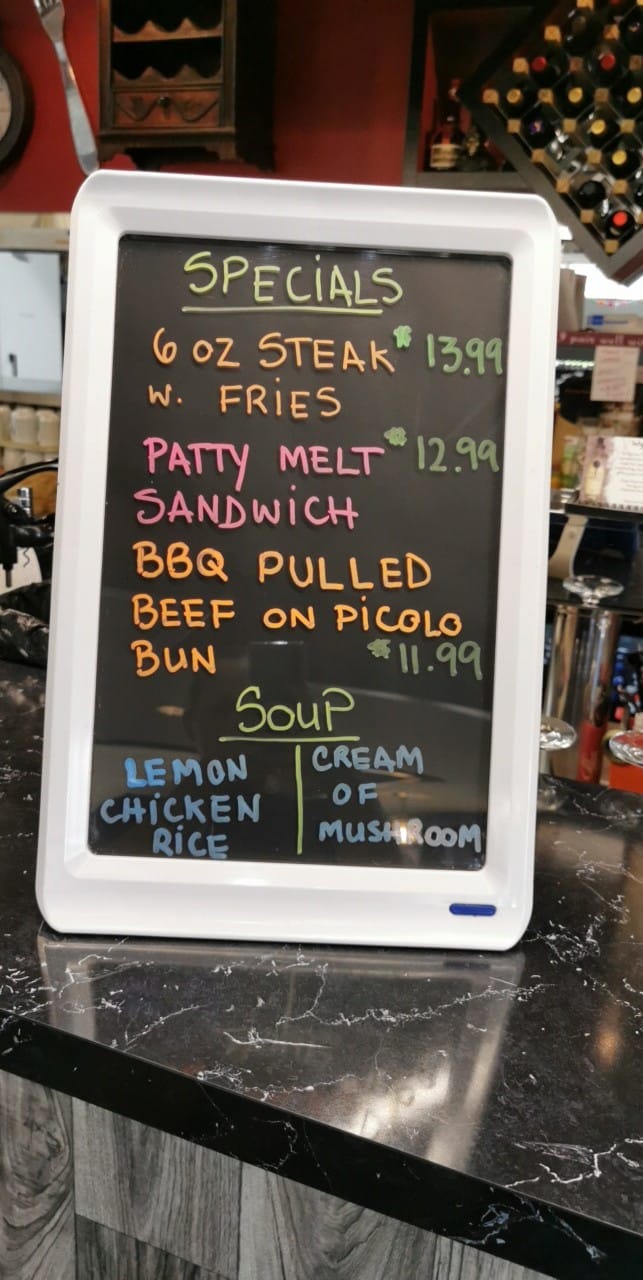 SPECiALS
6 OZ STEAK $13.99
w. FRiES
PATTY MELT $12.99
SANDWiCH
BBQ PULLED
BEEF ON PiCOLO
BUN $11.99
SOUP
LEMON
CHiCKEN
RiCE
CREAM
OF
MUSHROOM